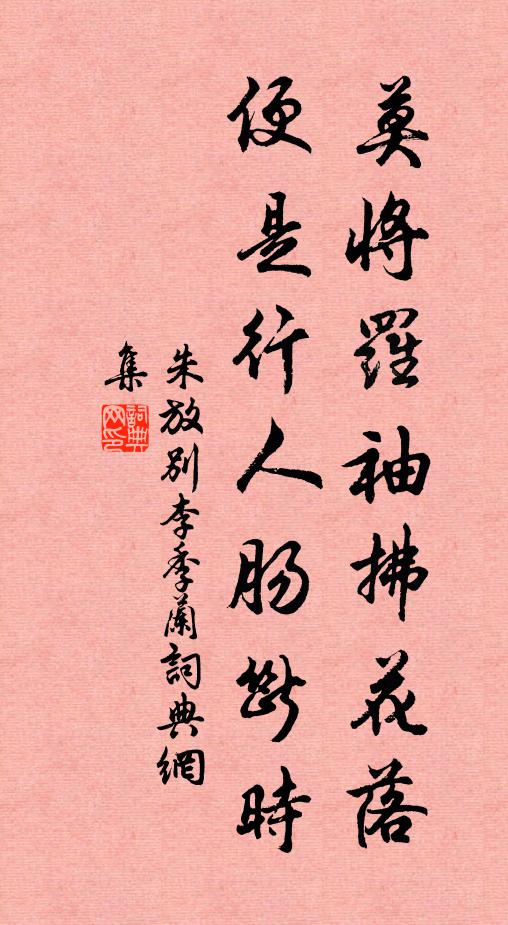 莫將羅袖拂花落
便是行人腸斷時
朱放別李季蘭詞典網
集
詞典网印